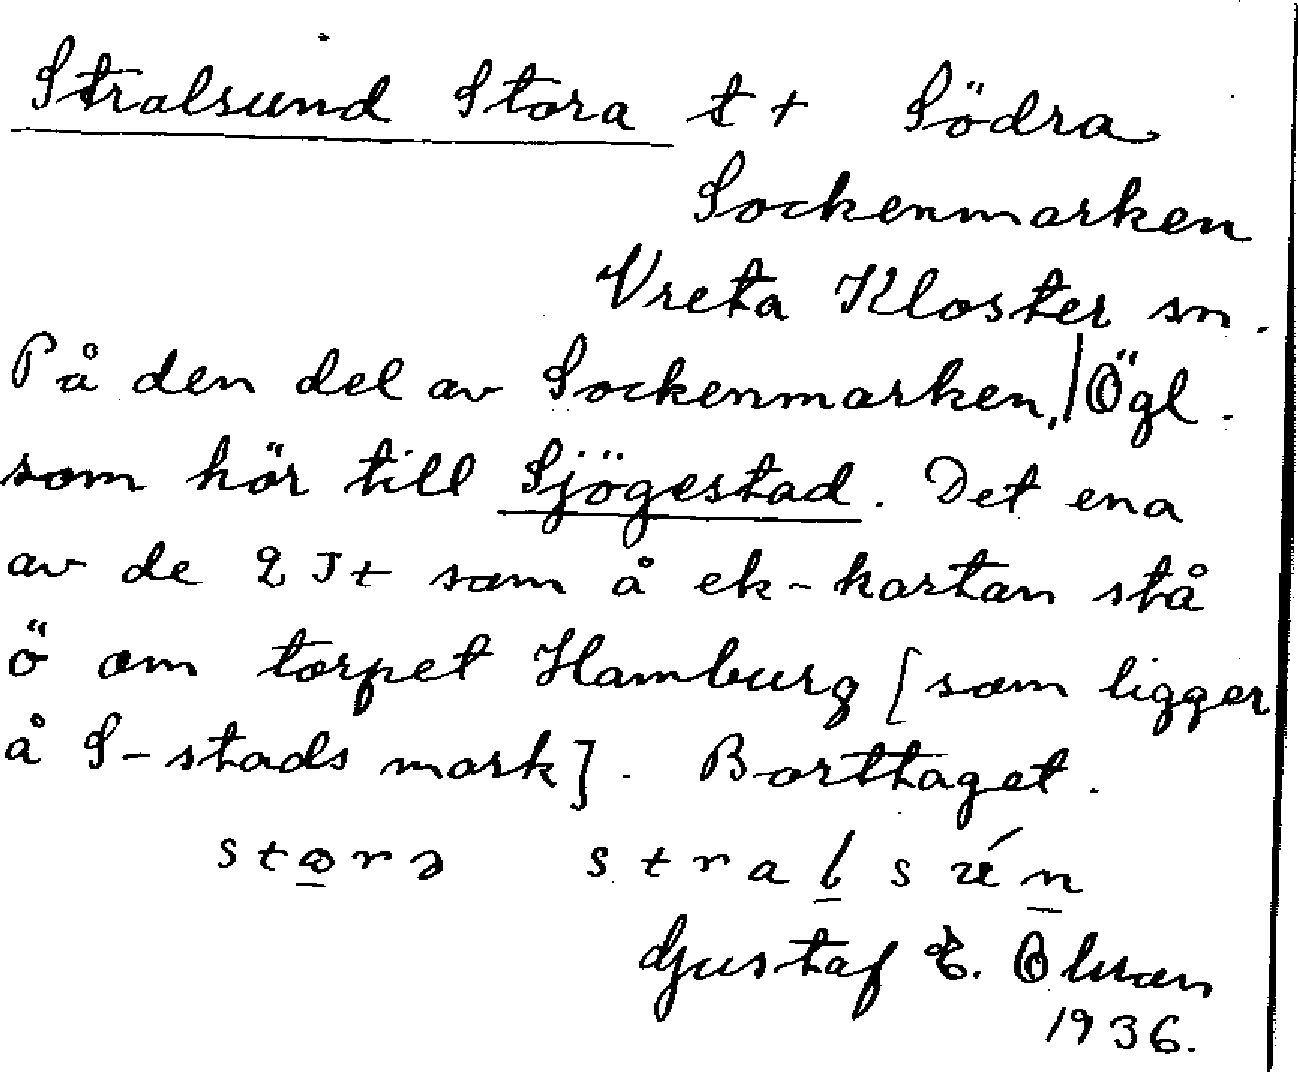 Stralsund Stora t + Södra
Sockenmarken
Vreta Kloster sn.
På den del av Sockenmarken, | Ögl.
som hör till Sjögestad. Det ena
av de 2 st som å ek-kartan stå
ö om torpet Hamburg [som ligger
å S-stads mark]. Borttaget.
Gustaf E. Olson
1936.